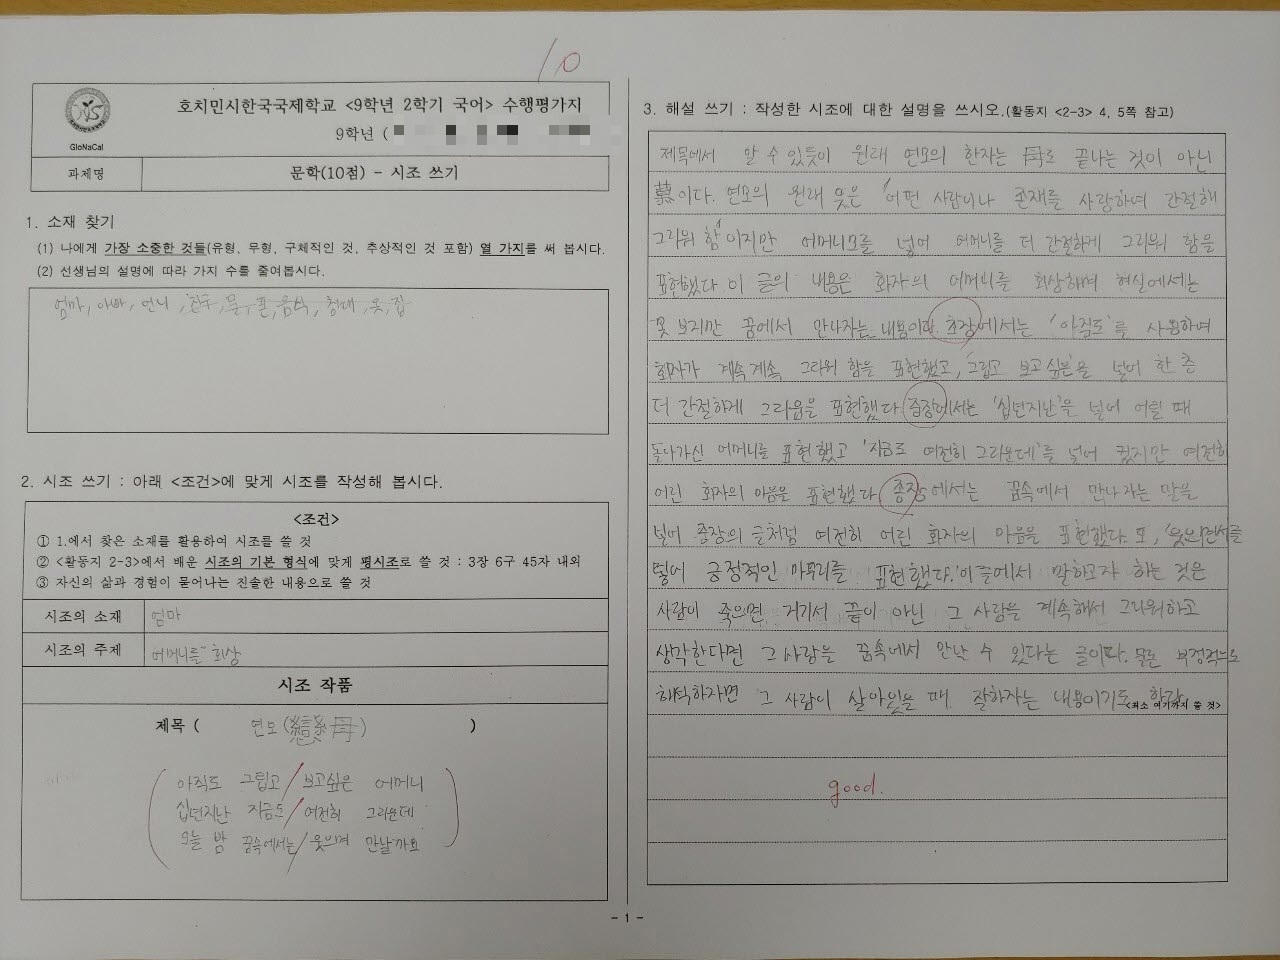 10
호치민시한국국제학교 <9학년 2학기 국어> 수행평가지
9학년 (
GloNaCal
과제명
문학(10점) - 시조 쓰기
1. 소재 찾기
(1) 나에게 가장 소중한 것들(유형, 무형, 구체적인 것, 추상적인 것 포함) 열 가지를 써 봅시다.
(2) 선생님의 설명에 따라 가지 수를 줄여봅시다.
엄마, 아빠, 언니, 친구, 물, 폰, 음식, 침대, 옷, 집
2. 시조 쓰기 : 아래 <조건>에 맞게 시조를 작성해 봅시다.
<조건>
① 1.에서 찾은 소재를 활용하여 시조를 쓸 것
② <활동지 2-3>에서 배운 시조의 기본 형식에 맞게 평시조로 쓸 것 : 3장 6구 45자 내외
③ 자신의 삶과 경험이 묻어나는 진솔한 내용으로 쓸 것
시조의 소재
엄마
시조의 주제
어머니를 회상
시조 작품
제목 ( 연모(戀母) )
아직도 그립고 / 보고싶은 어머니
십년지난 지금도 / 여전히 그리운데
오늘 밤 꿈속에서는 / 웃으며 만날까요
3. 해설 쓰기 : 작성한 시조에 대한 설명을 쓰시오.(활동지 <2-3> 4, 5쪽 참고)
제목에서 알 수 있듯이 원래 연모의 한자는 母로 끝나는 것이 아닌
慕이다. 연모의 원래 뜻은 '어떤 사람이나 존재를 사랑하여 간절해
그리워 함'이지만 어머니모를 넣어 어머니를 더 간절하게 그리워 함을
표현했다. 이 글의 내용은 화자의 어머니를 회상하며 현실에서는
못 보지만 꿈에서 만나자는 내용이다. 초장에서는 '아직도'를 사용하여
화자가 계속계속 그리워 함을 표현했고, '그립고 보고싶은'을 넣어 한 층
더 간절하게 그리움을 표현했다. 중장에서는 '십년지난'을 넣어 어릴 때
돌아가신 어머니를 표현했고 '지금도 여전히 그리운데'를 넣어 컸지만 여전히
어린 화자의 마음을 표현했다. 종장에서는 꿈속에서 만나자는 말을
넣어 중장의 글처럼 여전히 어린 화자의 마음을 표현했다. 또, '웃으면서'를
넣어 긍정적인 마무리를 표현했다. 이 글에서 말하고자 하는 것은
사람이 죽으면 거기서 끝이 아닌 그 사람을 계속해서 그리워하고
생각한다면 그 사람을 꿈속에서 만날 수 있다는 글이다. 물론 부정적으로
해석하자면 그 사람이 살아있을 때 잘하자는 내용이기도 하다.
<최소 여기까지 쓸 것>
good.
- 1 -